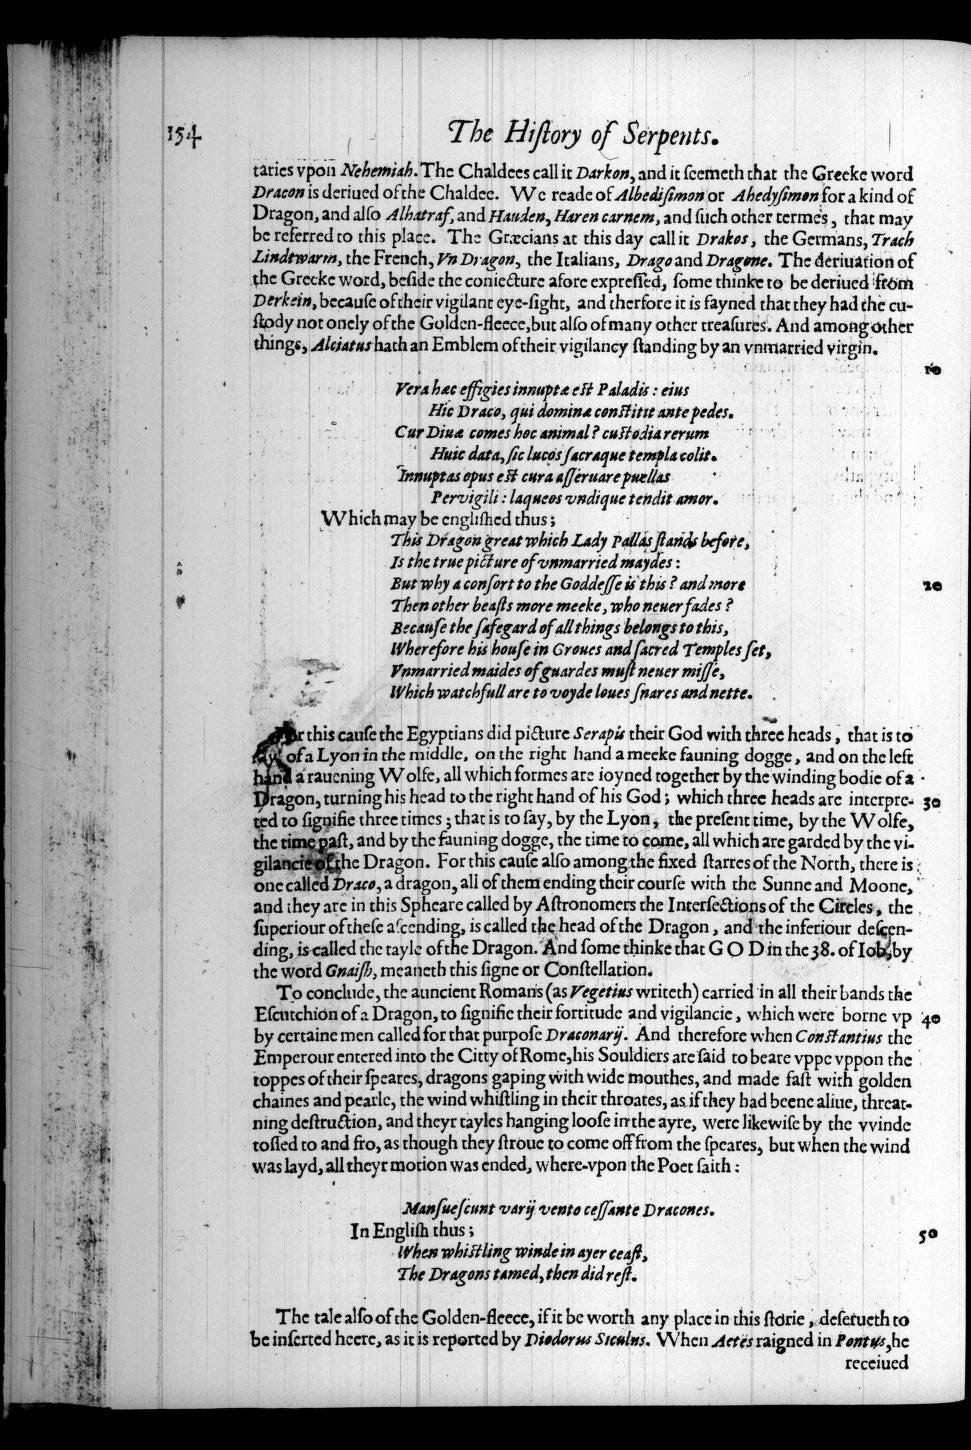 154 The Hiſtory of Serpents.
taries vpon Nehemiah. The Chaldees call it Darkon, and it ſeemeth that the Greeke word
Dracon is deriued of the Chaldee. We reade of Albediſimon or Ahedyſimon for a kind of
Dragon, and alſo Alhatraf, and Hauden, Haren carnem, and ſuch other termes, that may
be referred to this place. The Græcians at this day call it Drakos, the Germans, Trach
Lindtwarm, the French, Vn Dragon, the Italians, Drago and Dragone. The deriuation of
the Greeke word, beſide the coniecture afore expreſſed, ſome thinke to be deriued from
Derkein, becauſe of their vigilant eye-ſight, and therfore it is fayned that they had the cu-
ſtody not onely of the Golden-fleece, but alſo of many other treaſures. And among other
things, Alciatus hath an Emblem of their vigilancy ſtanding by an vnmarried virgin.
10
Vera hæc effigies innuptæ eſt Paladis: eius
Hic Draco, qui dominæ conſtitit ante pedes.
Cur Diuæ comes hoc animal? cuſtodia rerum
Huic data, ſic lucos ſacraque templa colit.
Innuptas opus eſt cura aſſeruare puellas
Pervigili: laqueos vndique tendit amor.
Which may be engliſhed thus;
This Dragon great which Lady Pallas ſtands before,
Is the true picture of vnmarried maydes:
But why a conſort to the Goddeſſe is this? and more 20
Then other beaſts more meeke, who neuer fades?
Becauſe the ſafegard of all things belongs to this,
Wherefore his houſe in Groues and ſacred Temples ſet,
Vnmarried maides of guardes muſt neuer miſſe,
Which watchfull are to voyde loues ſnares and nette.
For this cauſe the Egyptians did picture Serapis their God with three heads, that is to
ſay, of a Lyon in the middle, on the right hand a meeke fauning dogge, and on the left
hand a rauening Wolfe, all which formes are ioyned together by the winding bodie of a
Dragon, turning his head to the right hand of his God; which three heads are interpre- 30
ted to ſignifie three times; that is to ſay, by the Lyon, the preſent time, by the Wolfe,
the time paſt, and by the fauning dogge, the time to come, all which are garded by the vi-
gilancie of the Dragon. For this cauſe alſo among the fixed ſtarres of the North, there is
one called Draco, a dragon, all of them ending their courſe with the Sunne and Moone,
and they are in this Spheare called by Aſtronomers the Interſections of the Circles, the
ſuperiour of theſe aſcending, is called the head of the Dragon, and the inferiour deſcen-
ding, is called the tayle of the Dragon. And ſome thinke that G O D in the 38. of Iob, by
the word Gnaiſh, meaneth this ſigne or Conſtellation.
To conclude, the auncient Romans (as Vegetius writeth) carried in all their bands the
Eſcutchion of a Dragon, to ſignifie their fortitude and vigilancie, which were borne vp 40
by certaine men called for that purpoſe Draconarij. And therefore when Conſtantius the
Emperour entered into the Citty of Rome, his Souldiers are ſaid to beare vppe vppon the
toppes of their ſpeares, dragons gaping with wide mouthes, and made faſt with golden
chaines and pearle, the wind whiſtling in their throates, as if they had beene aliue, threat-
ning deſtruction, and theyr tayles hanging looſe in the ayre, were likewiſe by the vvinde
toſſed to and fro, as though they ſtroue to come off from the ſpeares, but when the wind
was layd, all theyr motion was ended, where-vpon the Poet ſaith:
Manſueſcunt varij vento ceſſante Dracones.
In Engliſh thus; 50
When whiſtling winde in ayer ceaſt,
The Dragons tamed, then did reſt.
The tale alſo of the Golden-fleece, if it be worth any place in this ſtorie, deſerueth to
be inſerted heere, as it is reported by Diodorus Siculus. When Aetes raigned in Pontus, he
receiued